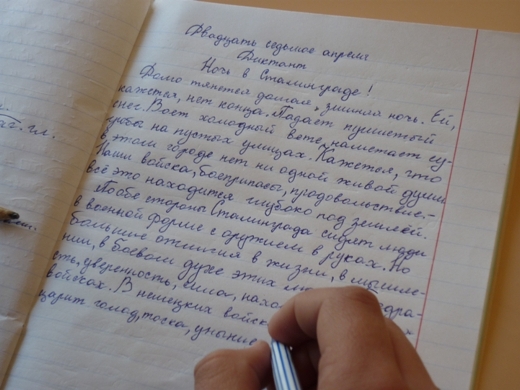 Двадцать седьмое апреля
Диктант
Ночь в Сталинграде!
тянется долгая, зимняя ночь. Ей,
кажется, нет конца. Падает пушистый
снег. Воет холодный ветер, наметает су-
гробы на пустых улицах. Кажется, что
в этом городе нет ни одной живой души
Наши войска, боеприпасы, продовольствие,-
всё это находится глубоко под землёй.
По обе стороны Сталинграда сидят люди
в военной форме с оружием в руках. Но
большие отличия в жизни, в мышле-
нии, в боевом духе этих
сть, уверенность, сила,
войсках. В немецких войска
царит голод, тоска, уныние
гл.